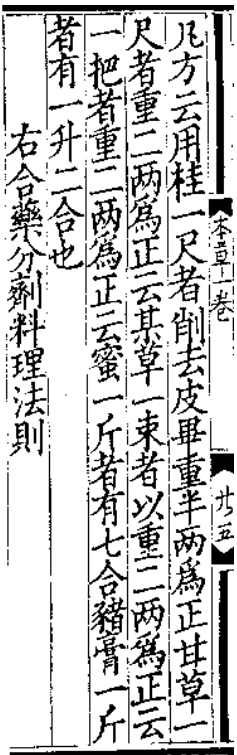 本草一卷
廿五
凡方云用桂一尺者削去皮畢重半两爲正甘草一
尺者重二两爲正云某草一束者以重二两爲正云
一把者重二两爲正云蜜一斤者有七合豬膏一斤
者有一升二合也
右合藥分劑料理法則